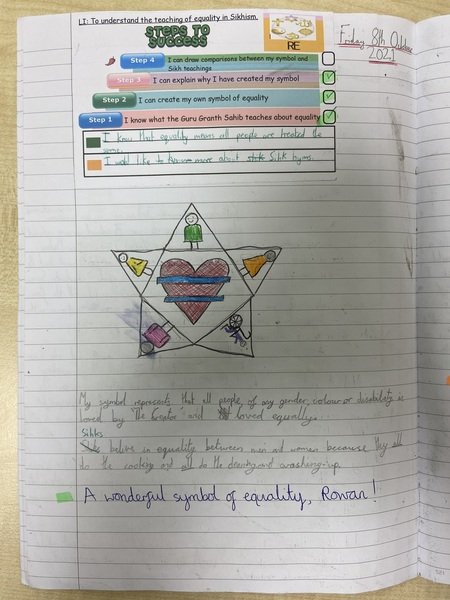 LI: To understand the teaching of equality in Sikhism.
STEPS TO
SUCCESS
RE
Friday 8th October
2021
Step 4 I can draw comparisons between my symbol and
Sikh teachings
Step 3 I can explain why I have created my symbol
Step 2 I can create my own symbol of equality
Step 1 I know what the Guru Granth Sahib teaches about equality
I know that equality means all people are treated the
same.
I would like to know more about Sikh hyms.
My symbol represents that all people, of any gender, colour or disability is
loved by 'The Creator' and loved equally.
Sikhs
believe in equality between men and women because they all
do the cooking and all do the cleaning and washing-up.
A wonderful symbol of equality, Rowan!